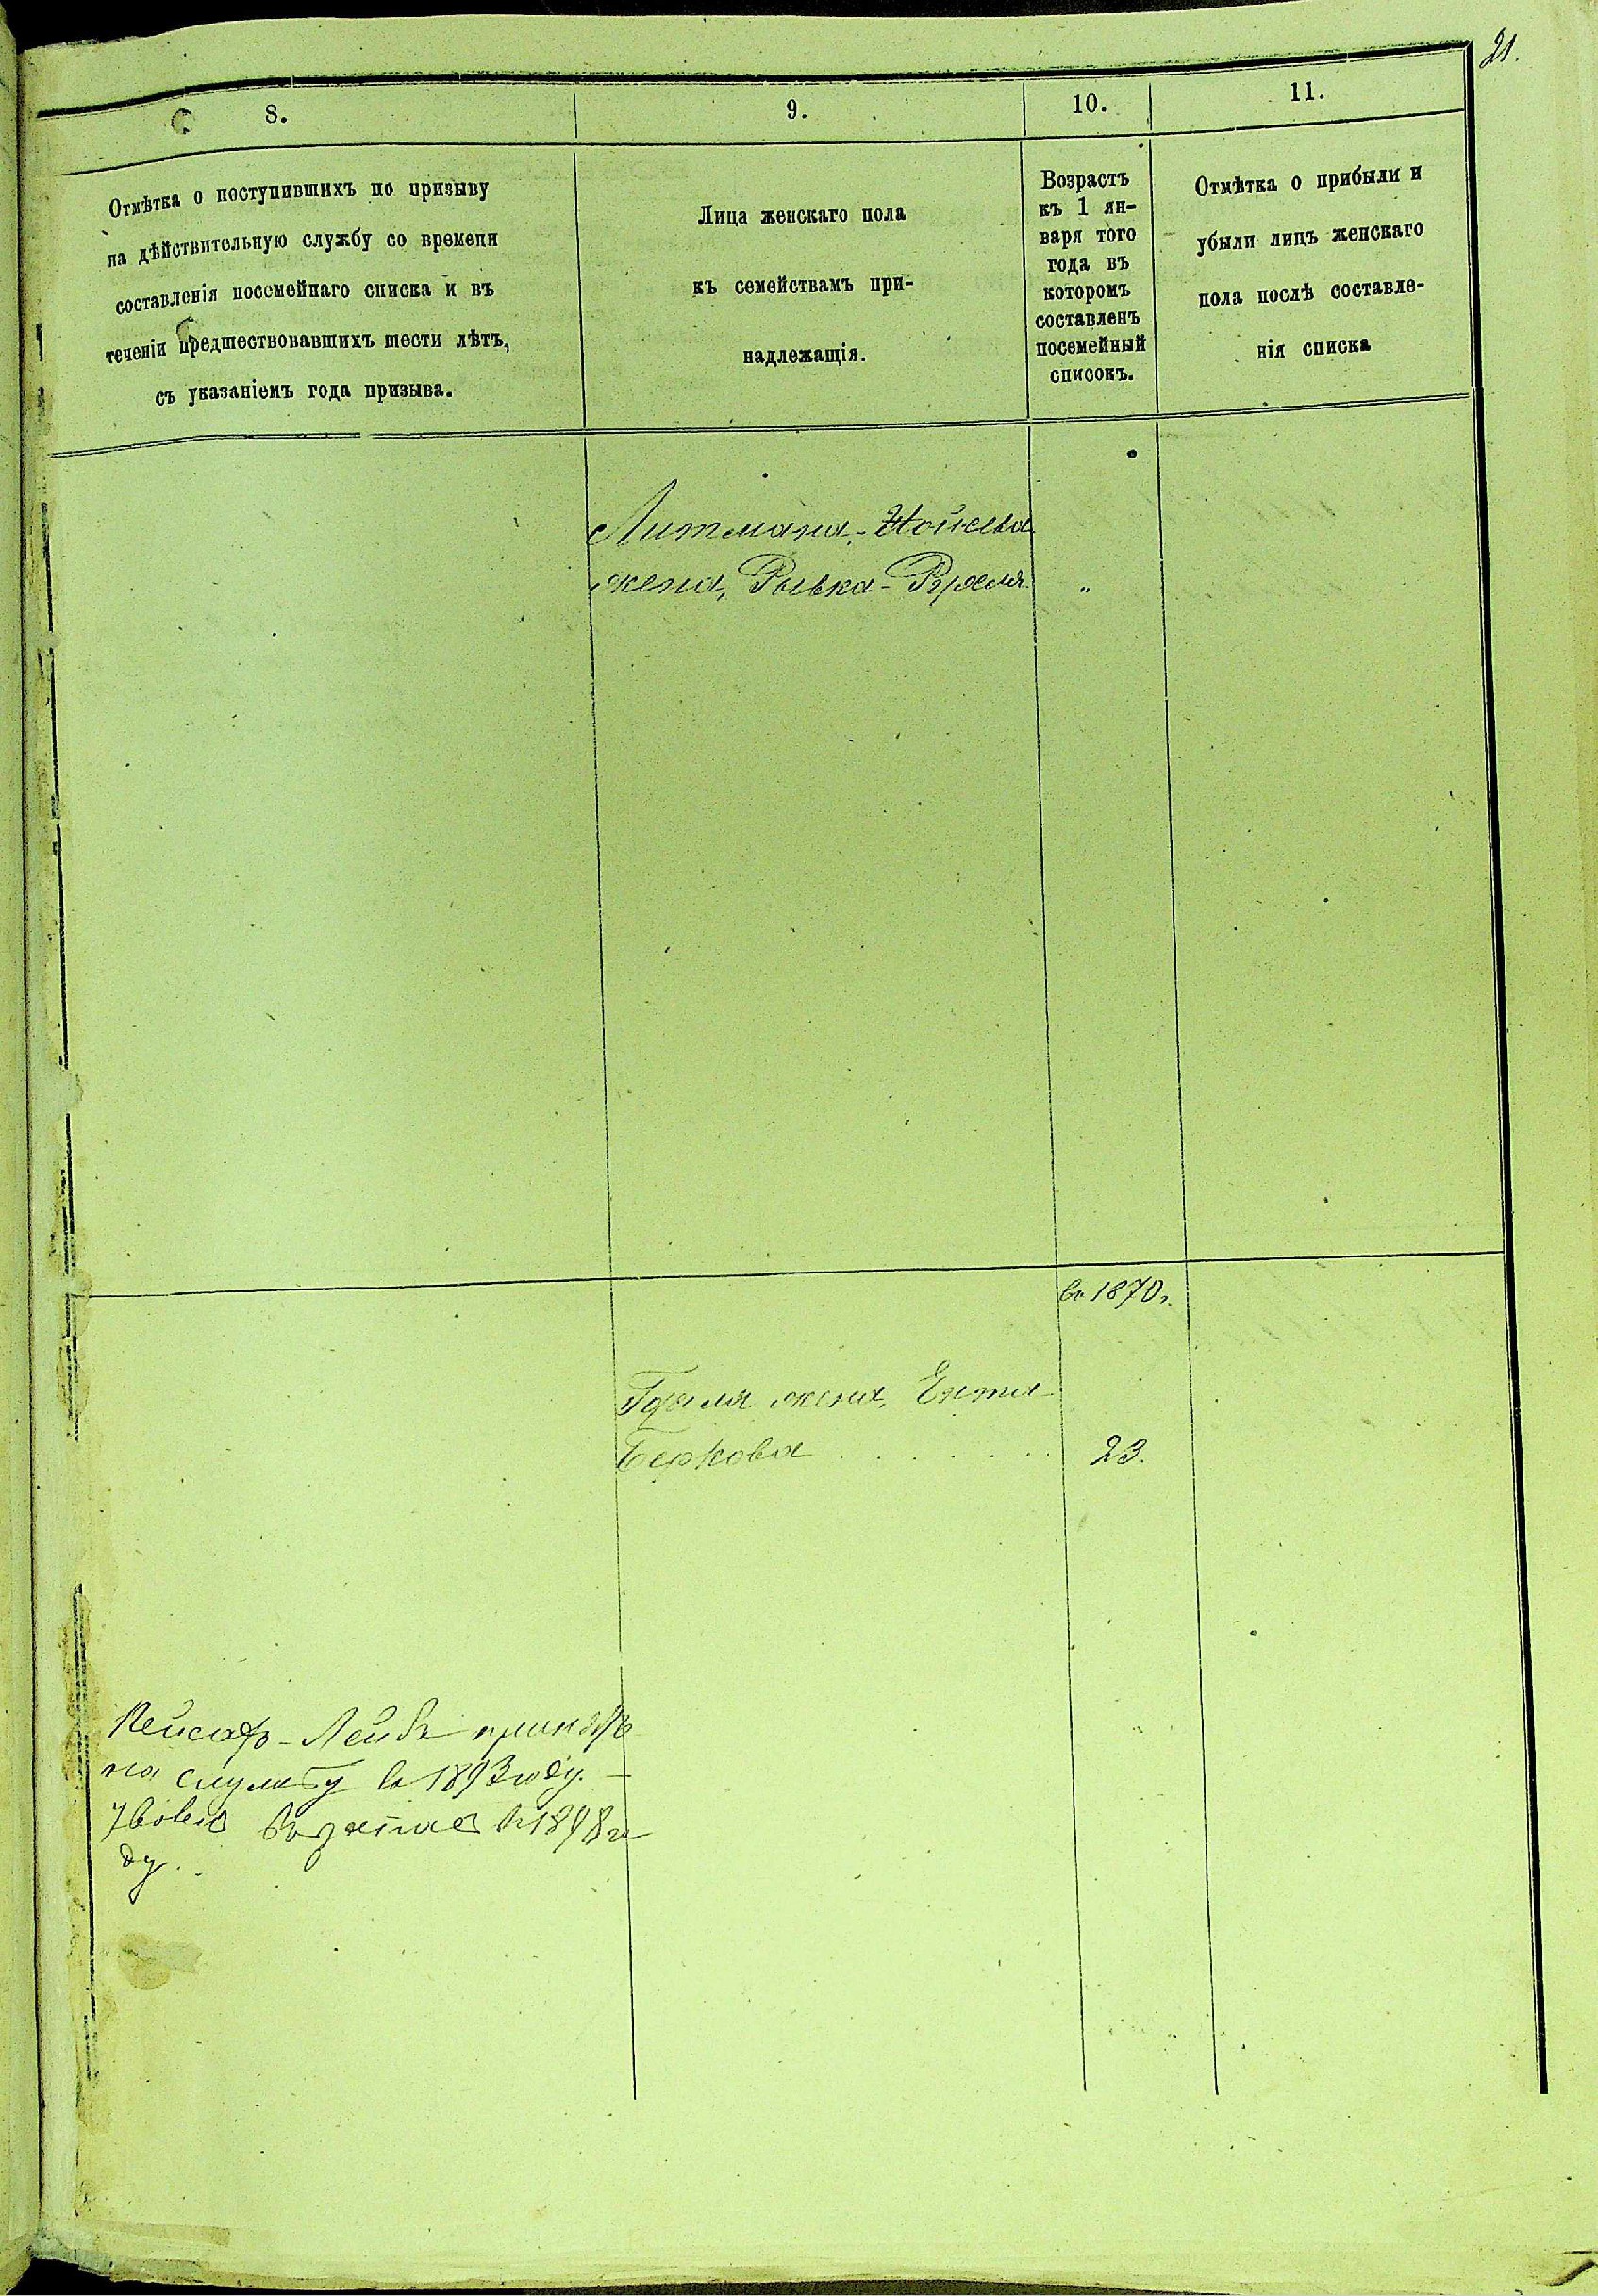 21.
8.
9.
10.
11.
Отмѣтка о поступившихъ по призыву
на дѣйствительную службу со времени
составленія посемейнаго списка и въ
теченіи предшествовавшихъ шести лѣтъ,
съ указаніемъ года призыва.
Лица женскаго пола
къ семействамъ при-
надлежащія.
Возрастъ
къ 1 ян-
варя того
года въ
которомъ
составленъ
посемейный
списокъ.
Отмѣтка о прибыли и
убыли лицъ женскаго
пола послѣ составле-
нія списка
Литмана-
жена, Рывка- „
въ 1870 г.
жена, Ента
Беркова 23.
Лейба принятъ
на службу въ 1893 году.
въ 1898 го
ду.